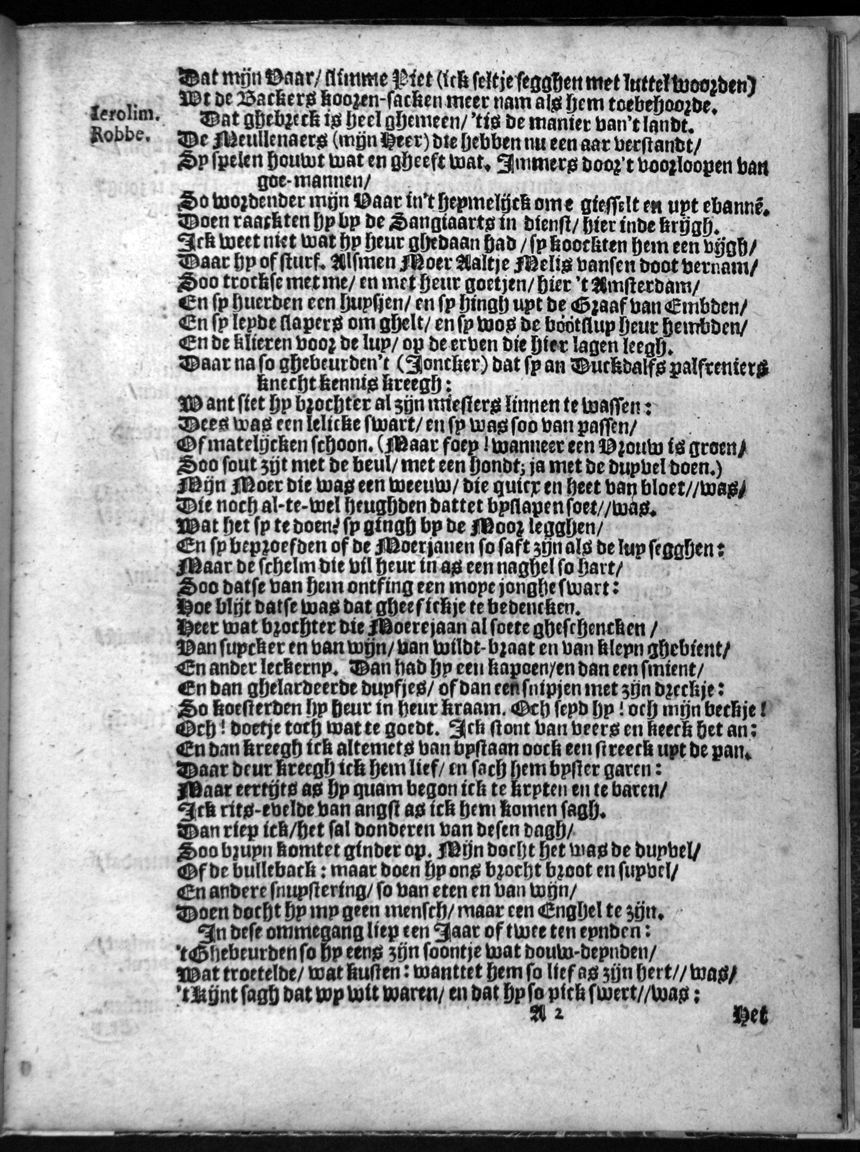 Dat mijn Vaar/ slimme Piet (ick seltje segghen met luttel woorden)
Wt de Backers kooren-sacken meer nam als hem toebehoorde.
Ierolim. Dat ghebreck is heel ghemeen/ 'tis de manier van't landt.
Robbe. De Meullenaers (mijn Heer) die hebben nu een aar verstandt/
Sy spelen houwt wat en gheeft wat. Immers door't voorloopen van
goe-mannen/
So wordender mijn Vaar in't heymelijck om e giesselt en uyt ebannē.
Doen raackten hy by de Sangiaarts in dienst/ hier inde krijgh.
Ick weet niet wat hy heur ghedaan had/ sy koockten hem een vijgh/
Daar hy of sturf. Alsmen Moer Aaltje Melis vansen doot vernam/
Soo trockse met me/ en met heur goetjen/ hier 't Amsterdam/
En sy huerden een huysjen/ en sy hingh uyt de Graaf van Embden/
En sy leyde slapers om ghelt/ en sy wos de bóótsluy heur hembden/
En de klieren voor de luy/ op de erven die hier lagen leegh.
Daar na so ghebeurden't (Joncker) dat sy an Duckdalfs palfreniers
knecht kennis kreegh:
Want siet hy brochter al zijn miesters linnen te wassen:
Dees was een lelicke swart/ en sy was soo van passen/
Of matelijcken schoon. (Maar foey! wanneer een Vrouw is groen/
Soo sout zijt met de beul/ met een hondt; ja met de duyvel doen.)
Mijn Moer die was een weeuw/ die quicx en heet van bloet//was/
Die noch al-te-wel heughden dattet byslapen soet//was.
Wat het sy te doen? sy gingh by de Moor legghen/
En sy beproefden of de Moerjanen so saft zijn als de luy segghen:
Maar de schelm die vil heur in as een naghel so hart/
Soo datse van hem ontfing een moye jonghe swart:
Hoe blijt datse was dat gheef ickje te bedencken.
Heer wat brochter die Moerejaan al soete gheschencken /
Van suycker en van wijn/ van wildt-braat en van kleyn ghebient/
En ander leckerny. Dan had hy een kapoen/ en dan een smient/
En dan ghelardeerde duyfjes/ of dan een snipjen met zijn dreckje:
So koesterden hy heur in heur kraam. Och seyd hy! och mijn beckje!
Och! doetje toch wat te goedt. Ick stont van veers en keeck het an:
En dan kreegh ick altemets van bystaan oock een streeck uyt de pan.
Daar deur kreegh ick hem lief/ en sach hem byster garen:
Maar eertijts as hy quam begon ick te kryten en te baren/
Ick rits-evelde van angst as ick hem komen sagh.
Dan riep ick/het sal donderen van desen dagh/
Soo bruyn komtet ginder op. Mijn docht het was de duyvel/
Of de bulleback: maar doen hy ons brocht broot en suyvel/
En andere snuystering/ so van eten en van wijn/
Doen docht hy my geen mensch/ maar een Enghel te zijn.
In dese ommegang liep een Jaar of twee ten eynden:
't Ghebeurden so hy eens zijn soontje wat douw-deynden/
Wat troetelde/ wat kusten: wanttet hem so lief as zijn hert//was/
't Kijnt sagh dat wy wit waren/ en dat hy so pick swert//was:
A 2 Het